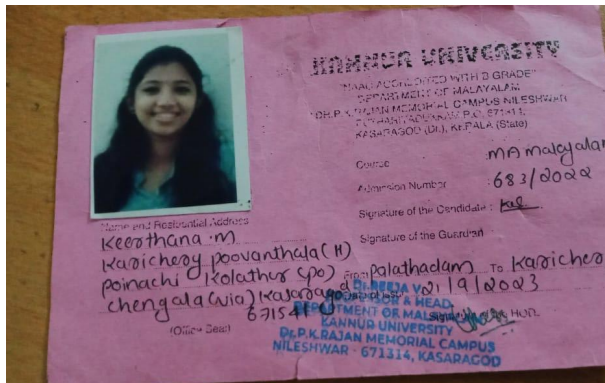 KANNUR UNIVERSITY
"NAAC ACCREDITED WITH B GRADE"
DEPARTMENT OF MALAYALAM
DR.P.K. RAJAN MEMORIAL CAMPUS NILESHWAR
P.O. 671314
KASARAGOD (Dt.), KERALA (State)
Course : MA malayalam
Admission Number : 683/2022
Signature of the Candidate :
Signature of the Guardian
Name and Residential Address
Keerthana.M
Karichery poovanthala (H)
poinachi Kolathur (po) From palathadam To Karichery
chengala (via) Kasaragod 21/9/2023
671541
(Office Seal)
Dr.REEJA V
PROFESSOR & HEAD,
DEPARTMENT OF MALAYALAM
KANNUR UNIVERSITY
Dr.P.K.RAJAN MEMORIAL CAMPUS
NILESHWAR - 671314, KASARAGOD
HOD.